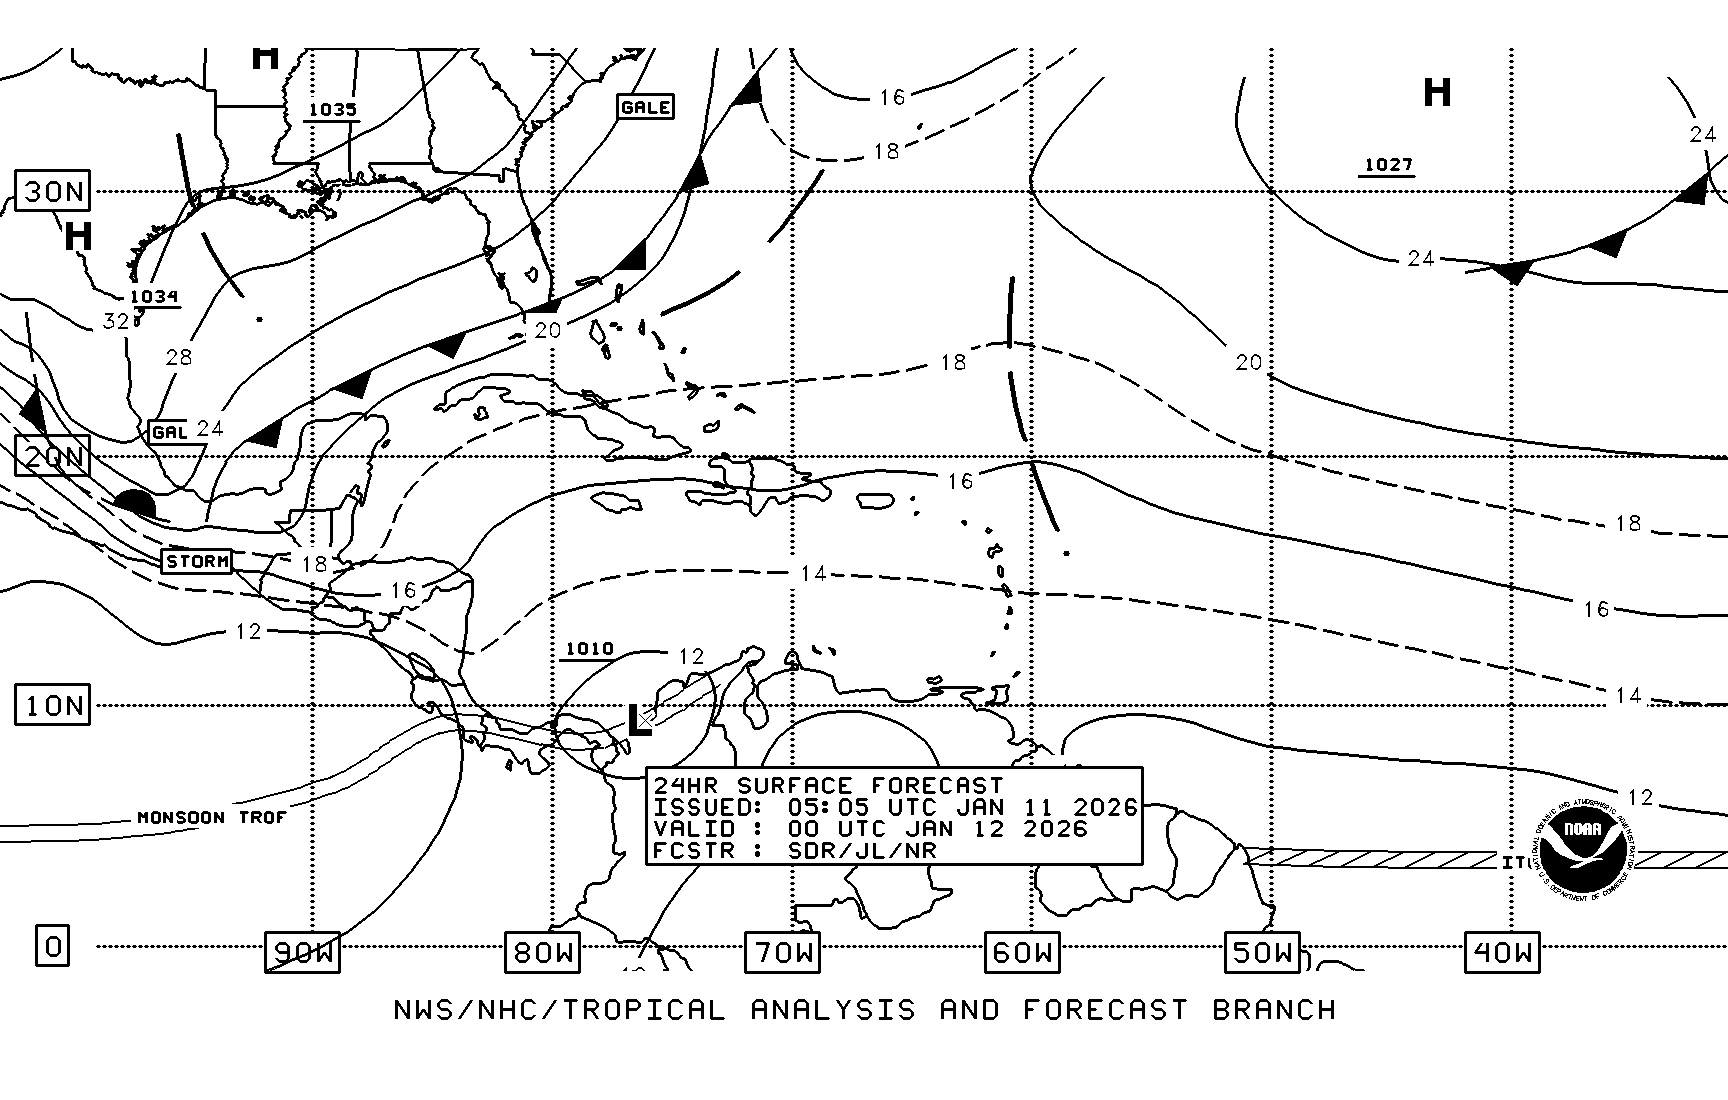 H
1035
GALE
16
H
18
24
1027
30N
H
24
1034
32
20
28
18
20
GAL
24
20N
16
18
STORM
18
14
16
16
12
1010
12
14
10N
L
24HR SURFACE FORECAST
ISSUED: 05:05 UTC JAN 11 2026
VALID : 00 UTC JAN 12 2026
FCSTR : SDR/JL/NR
12
MONSOON TROF
NATIONAL OCEANIC AND ATMOSPHERIC ADMINISTRATION
NOAA
U.S. DEPARTMENT OF COMMERCE
0
90W
80W
70W
60W
50W
40W
NWS/NHC/TROPICAL ANALYSIS AND FORECAST BRANCH